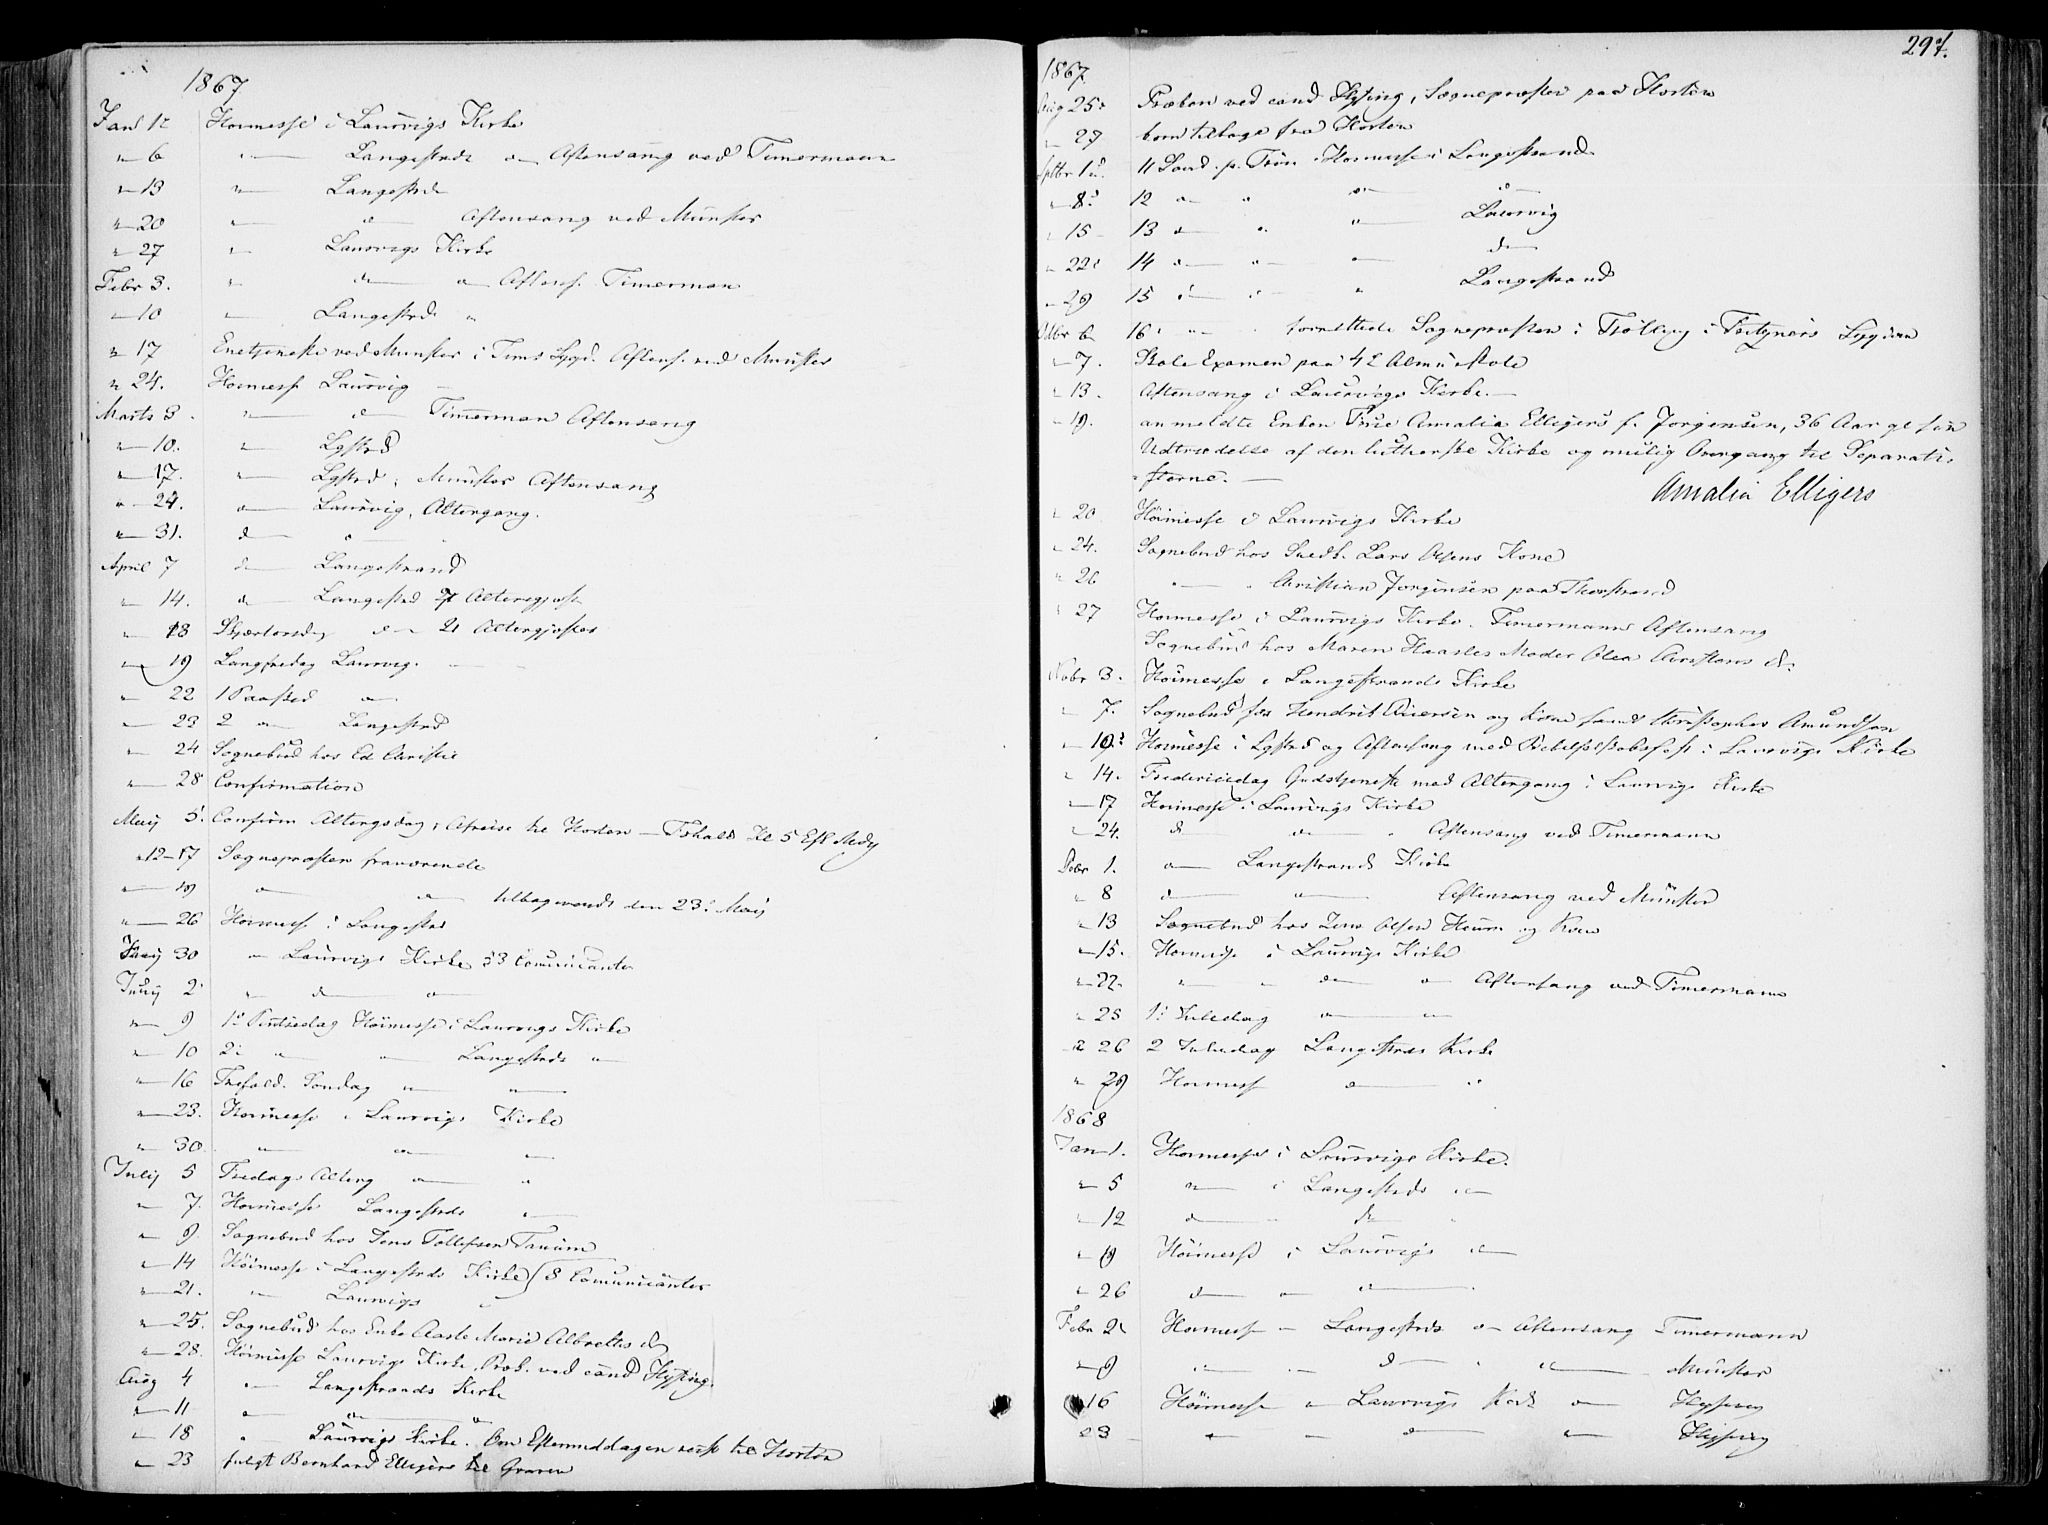 1867
Jan 1 Hoimesse i Laurvigs Kirke
" 6 " Langestrds " Aftensang ved Timermann
" 13 " Langestrds
" 20 " " Aftensang ved Münster
" 27 " Laurvigs Kirke
Febr 3. " do " Aftens. Timerman
" 10 " Langestrds "
" 17 ved Munster i Aftens. ved Munster
" 24. Hoimesse Laurvig
Marts 3 " do Timerman Aftensang
" 10. " Lgstrd
" 17. " Lgstrd; Munster Aftensang
" 24. " Laurvig, Altergang.
" 31. do "
April 7 do Langestrand
" 14. do Langestrd Altergjæst
" 18 Skjærtorsdag do 21 Altergjæster
" 19 Langfredag Laurvig.
" 22 1 Paasked "
" 23 2 " Langestrd
" 24 Sognebud hos Ed Christie
" 28 Confirmation
Maij 5. Confirm Altergsdag, Afreise til Horten Kl 5 Eft
" 12-17 Sognepræsten fraværende
" 19 " " tilbagevendt den 23 Maij
" 26 Hoimesse i Langestrd
30 " Laurvigs Kirke 53 Comunicanter
Junij 2 " do "
" 9 1 Pintsedag Höimesse i Laurvigs Kirke
" 10 2 " " Langestrds "
" 16 Trefold. Sondag " "
" 23. Hoimesse i Laurvigs Kirke
" 30. " " "
Julij 5 Fredags Alterg " "
" 7. Hoimesse Langestrds "
" 9. Sognebud hos Jens Tollefsen
" 14 Höimesse i Langestrds Kirke (8 Comunicanter
" 21. " Laurvigs "
" 25. Sognebud hos Enke Aaste Marie Albrettes d
" 28. Höimesse Laurvigs Kirke, Præk. ved cand Hyssing.
Aug 4 " Langestrands Kirke
" 11 " do "
" 18 " Laurvigs Kirke. Om Eftermiddagen reist til Horten
" 23 fulgt Bernhard Elligers til Graven
297.
1867.
Aug 25 Præken ved cand Hyssing, Sognepræsten paa Horten
" 27 kom tilbage fra Horten
Septbr 1 11 Sond. p. Trin. Hoimesse i Langestrand
" 8 12 " " " "
" 15 13 " " " Laurvig
" 22 14 " " " do
" 29 15 " " " Langestrand
Octbr 6 16 " " forrettede Sognepræsten i Tjölling i
" 7. Skole Examen paa 4 Almueskole
" 13. Aftensang i Laurvigs Kirke.
" 19. anmeldte Enken Frue Amalia Elligers f. Jorgensen, 36 Aar gl sin
Udtrædelse af den lutherske Kirke og mulig Overgang til Separati-
sterne.
Amalia Elligers
" 20 Höimesse i Laurvigs Kirke
" 24. Sognebud hos Lars Olsens Kone
" 26 " " Christian Jorgensen paa Thorstrand
" 27 Hoimesse i Laurvigs Kirke. Timermann Aftensang
Sognebud hos Maren Moder Olea
Nobr 3. Höimesse i Langestrands Kirke
" 7. Sognebud hos Hendrik og Kone samt Christopher Amundsen
" 10 Hoimesse i Lgstrd og Aftensang med i Laurvigs Kirke
" 14. Gudstjeneste med Altergang i Laurvigs Kirke
" 17 Hoimesse i Laurvigs Kirke
" 24. do " " Aftensang ved Timermann
Debr 1. " Langestrands Kirke
" 8 do " Aftensang ved Münster
" 13 Sognebud hos Jens Olsen og Kone
" 15. Hoimesse i Laurvigs Kirke
" 22. " " do " Aftensang ved Timermann
" 25 1 Juledag " "
" 26 2 Juledag Langestrds Kirke
" 29 Hoimesse do "
1868
Jan 1. Hoimesse i Laurvigs Kirke.
" 5 " i Langestrds "
" 12 do " do "
" 19 Höimesse i Laurvigs "
" 26 do " do
Febr 2 Hoimesse " Langestrds " Aftensang Timermann
" 9 " " do " " Münster
" 16 Höimesse " Laurvigs Kirk " Hyssing
23 " " do " Hyssing